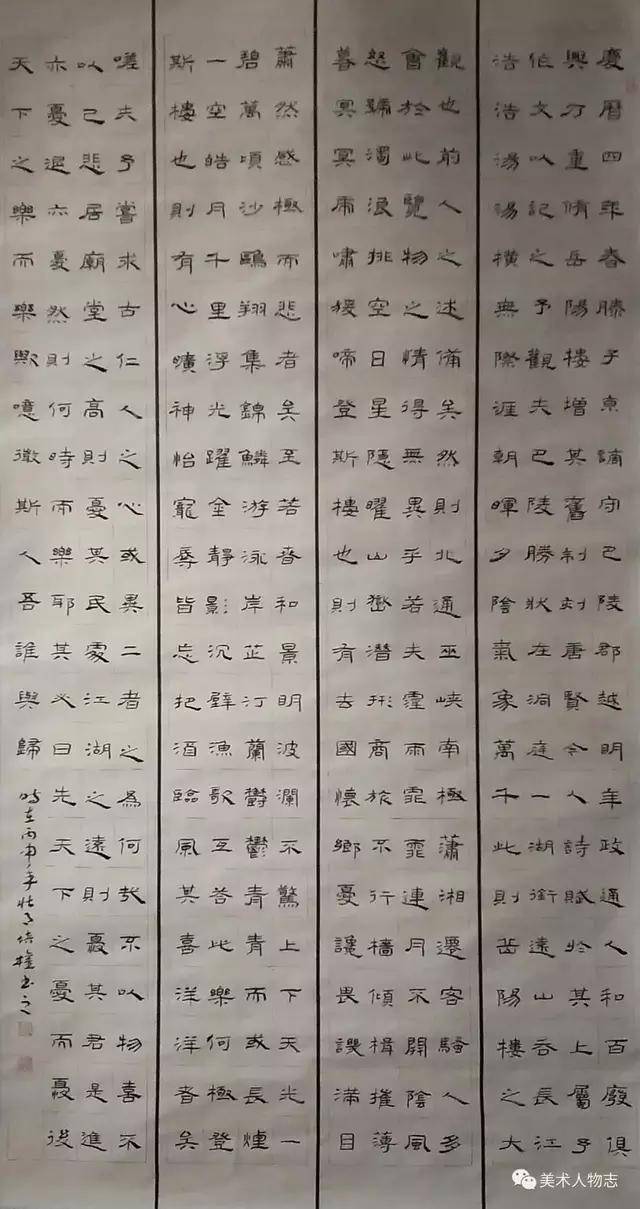 慶曆四年春滕子京謫守巴陵郡越明年政通人和百廢俱
興乃重脩岳陽樓增其舊制刻唐賢今人詩賦於其上屬予
作文以記之予觀夫巴陵勝狀在洞庭一湖銜遠山吞長江
浩浩湯湯橫無際涯朝暉夕陰氣象萬千此則岳陽樓之大
觀也前人之述備矣然則北通巫峽南極瀟湘遷客騷人多
會於此覽物之情得無異乎若夫霪雨霏霏連月不開陰風
怒號濁浪排空日星隱曜山嶽潛形商旅不行檣傾楫摧薄
暮冥冥虎嘯猨啼登斯樓也則有去國懷鄉憂讒畏譏滿目
蕭然感極而悲者矣至若春和景明波瀾不驚上下天光一
碧萬頃沙鷗翔集錦鱗游泳岸芷汀蘭鬱鬱青青而或長煙
一空皓月千里浮光躍金靜影沉璧漁歌互答此樂何極登
斯樓也則有心曠神怡寵辱皆忘把酒臨風其喜洋洋者矣
嗟夫予嘗求古仁人之心或異二者之為何哉不以物喜不
以己悲居廟堂之高則憂其民處江湖之遠則憂其君是進
亦憂退亦憂然則何時而樂耶其必曰先天下之憂而憂後
天下之樂而樂歟噫微斯人吾誰與歸
時在丙申年壯月培權書之
美术人物志